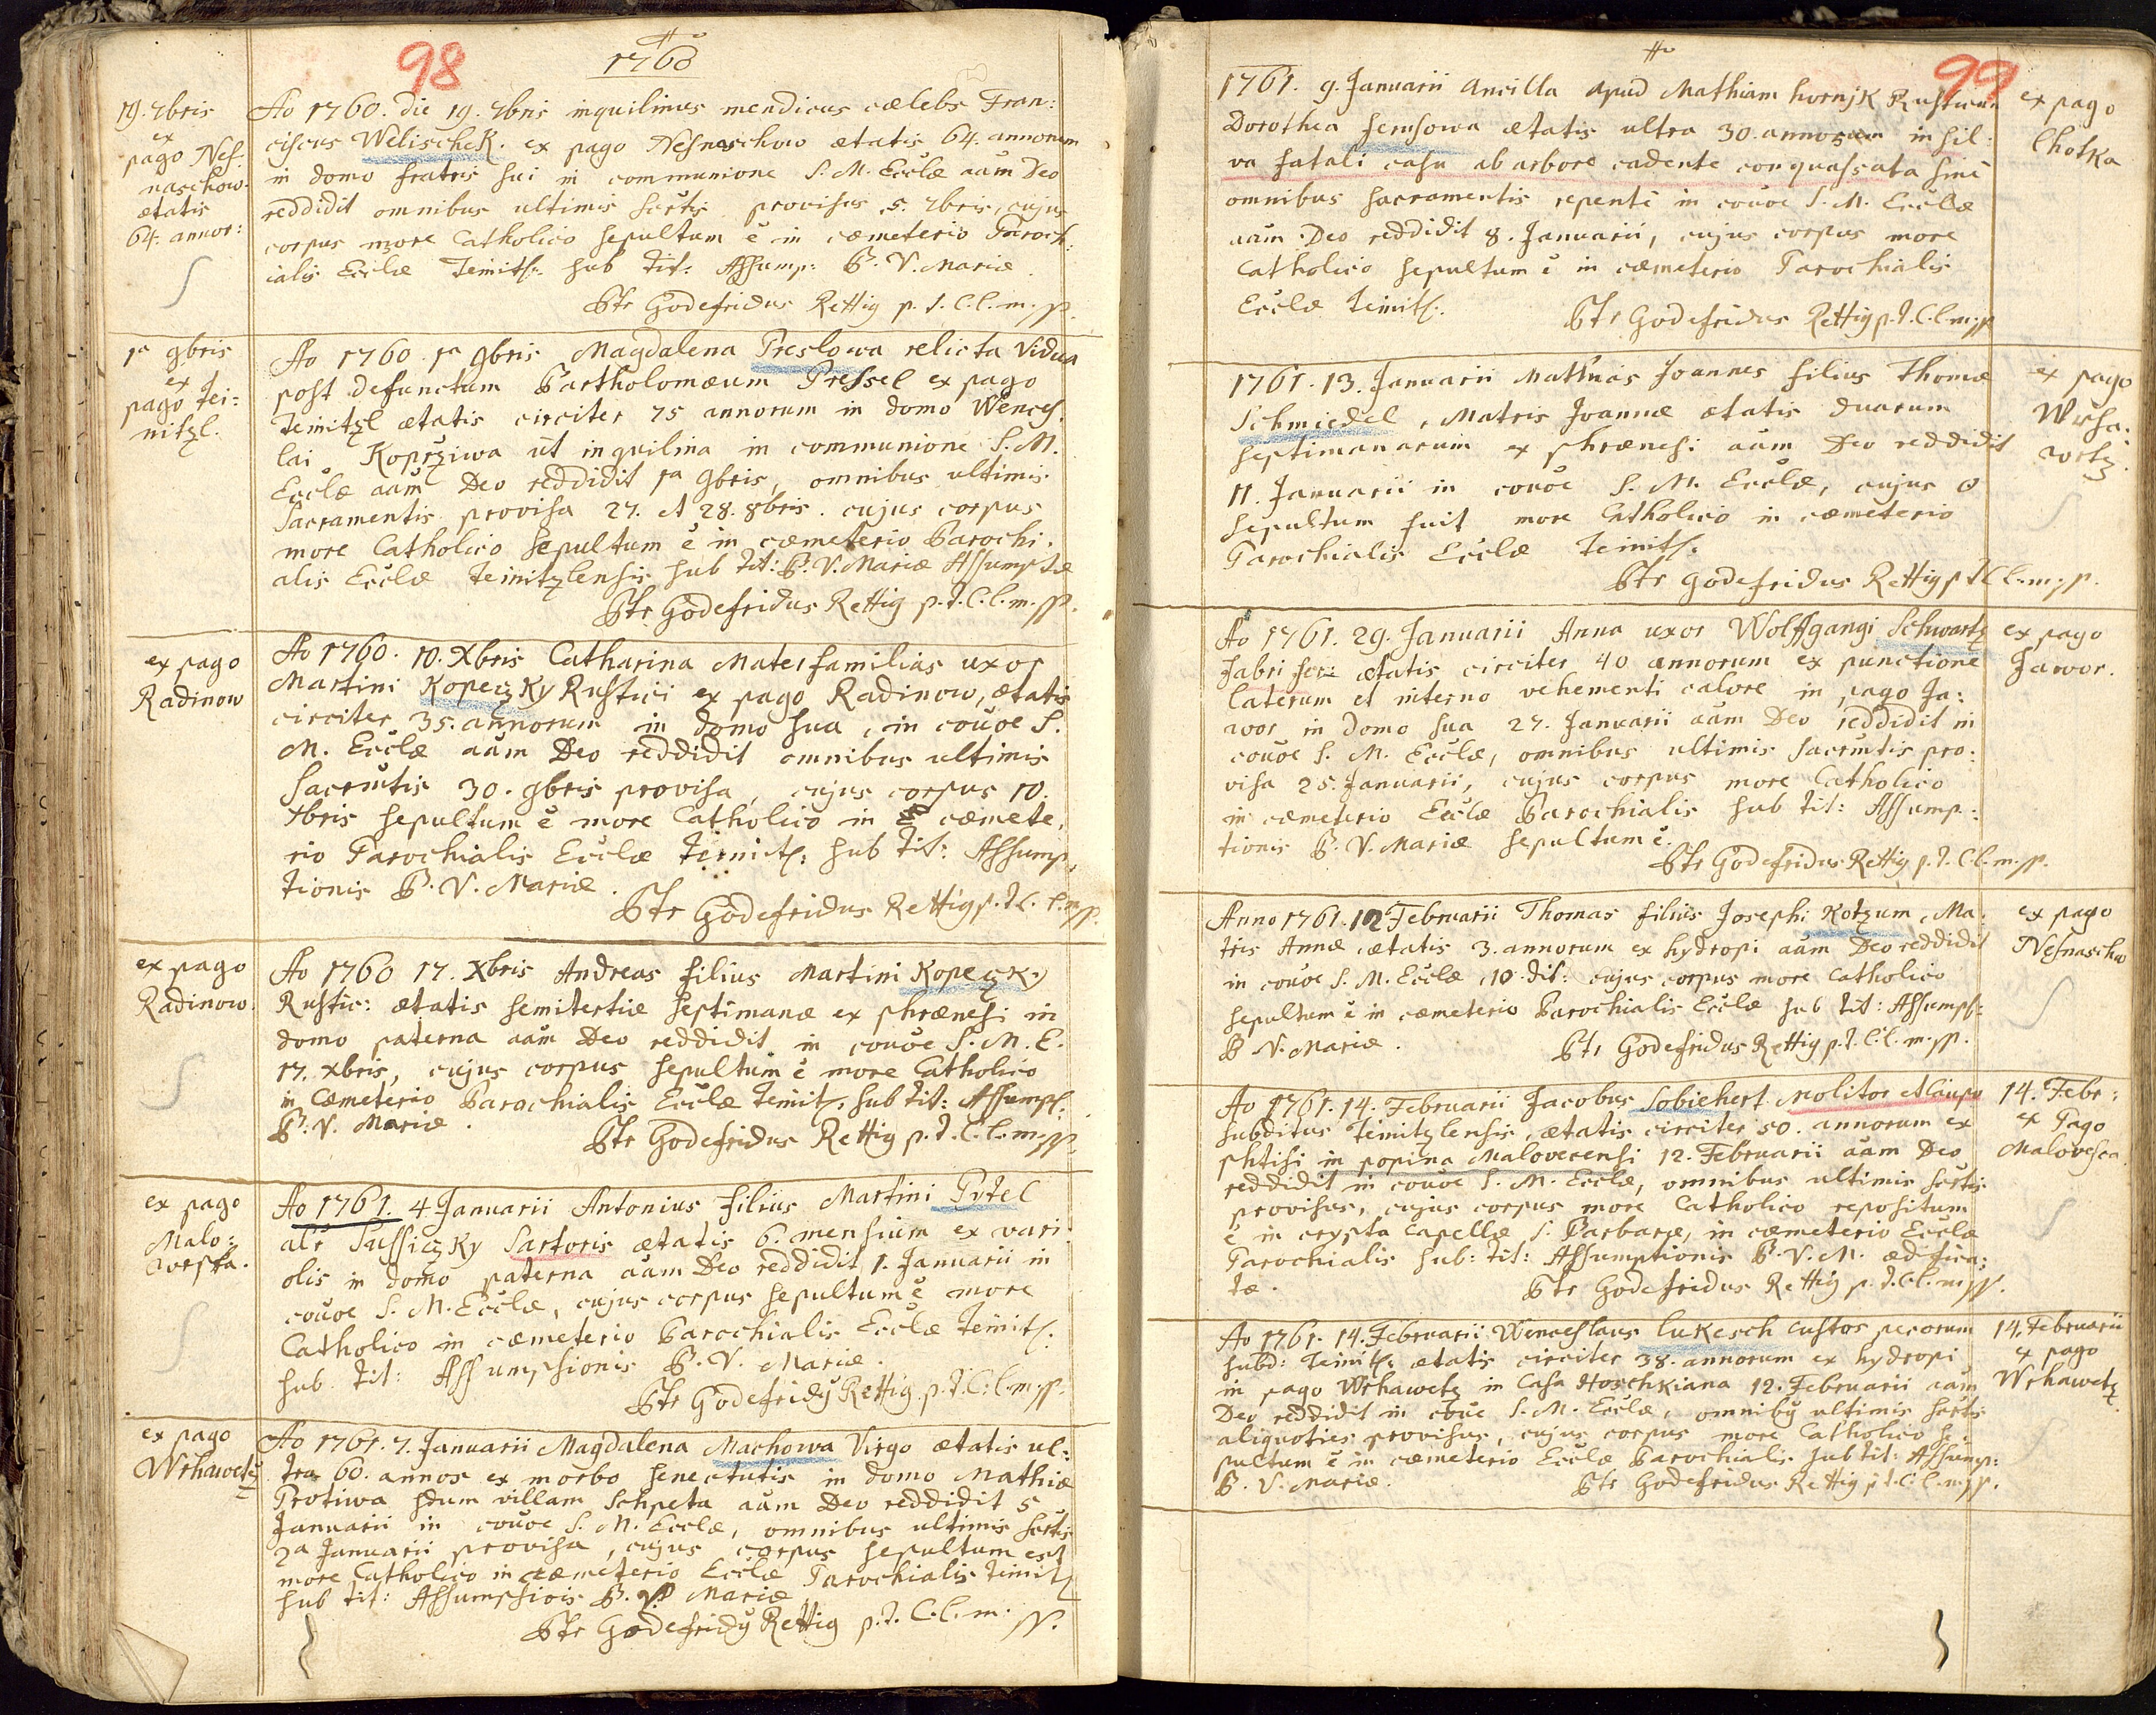 98
1760
19. 7bris
ex
pago Nes:
naschow.
ætatis
64. annor:
Ao 1760. die 19. 7bris inquilinus mendicus cælebs Fran:
ciscus Welischek. ex pago Nesnaschow ætatis 64. annorum
in domo fratris sui in communione S. M. Ecclæ aãm Deo
reddidit omnibus ultimis sartis provisus 5. 7bris, cujus
corpus more Catholico sepultum ẽ in cæmeterio Paroch:
ialis Ecclæ Teinitz: sub tit: Assump: B. V. Mariæ.
Ptr Godefridus Rettig p. t. C. l. m. pp.
1a 9bris
ex
pago Tei:
nitzl.
Ao 1760 1a 9bris Magdalena Preslowa relicta Vidua
post defunctum Bartholomæum Pressel ex pago
Teinitzl ætatis circiter 75 annorum in domo Wences
lai Koprziwa ut inquilina in communione S. M.
Ecclæ aãm Deo reddidit 1a 9bris, omnibus ultimis
Sacramentis provisa 27. et 28. 8bris. cujus corpus
more Catholico sepultum ẽ in cæmeterio Parochi.
alis Ecclæ Teinitzlensis sub tit: B. V. Mariæ Assumptæ
Ptr Godefridus Rettig p. t. C. l. m. pp.
ex pago
Radinow
Ao 1760. 10. Xbris Catharina Mater familias uxor
Martini Kopeczky Rustici ex pago Radinow, ætatis
circiter 35. annorum in domo sua, in coũoe S.
M. Ecclæ aãm Deo reddidit omnibus ultimis
Sacrm̃tis 30. 9bris provisa, cujus corpus 10.
Xbris sepultum ẽ more Catholico in cæmete,
rio Parochialis Ecclæ Teinitz: sub tit: Assump,
tionis B. V. Mariæ.
Ptr Godefridus Rettig p. t. C. l. m. pp.
ex pago
Radinow.
Ao 1760 17. Xbris Andreas filius Martini Kopeczky
Rustic: ætatis semitertiæ septimanæ ex phrænesi in
domo paterna aãm Deo reddidit in coũoe S. M. E.
17. Xbris, cujus corpus sepultum ẽ more Catholico
in Cæmeterio Parochialis Ecclæ Teinitz, sub tit: Assumpt:
B. V. Mariæ.
Ptr Godefridus Rettig p. t. C. l. m. pp.
ex pago
Malo:
worska.
Ao 1761. 4 Januarii Antonius filius Martini Pytel
alr Sussiczky Sartoris ætatis 6. mensium ex vari:
olis in domo paterna aãm Deo reddidit 1. Januarii in
coũoe S. M. Ecclæ, cujus corpus sepultum ẽ more
Catholico in cæmeterio Parochialis Ecclæ Teinitz.
sub tit: Assumpsionis B. V. Mariæ.
Ptr Godefridy Rettig p. t. C. l. m. pp.
ex pago
Wrhawetz
Ao 1761. 7. Januarii Magdalena Machowa Virgo ætatis ul:
tra 60. annos ex morbo senectutis in domo Mathiæ
Protiwa sdum villam Schpeta aãm Deo reddidit 5
Januarii in coũoe S. M. Ecclæ, omnibus ultimis sartis
2a Januarii provisa, cujus corpus sepultum est
more Catholico in cæmeterio Ecclæ Parochialis Teinitz
sub tit: Assumpsiois B. V. Mariæ
Ptr Godefridy Rettig p. t. C. l. m. pp.
99
1761. 9. Januarii Ancilla apud Mathiam hornjk Rusticum
Dorothea Jemsowa ætatis ultra 30. annorum in sil:
va fatali casu ab arbore cadente conquassata sinè
omnibus sacramentis repentè in coũoe S. M. Ecclæ
aãm Deo reddidit 8. Januarii, cujus corpus more
Catholico sepultum ẽ in cæmeterio Parochialis
Ecclæ Teinitz.
Ptr Godefridus Rettig p. t. C. l. m. pp
ex pago
Chotka
1761. 13. Januarii Mathias Joannes filius Thomæ
Schmiedel, Matris Joannæ ætatis duarum
septimanarum ex phrænesi aãm Deo reddidit
11. Januarii in coũoe S. M. Ecclæ, cujus
sepultum fuit more Catholico in cæmeterio
Parochialis Ecclæ Teinitz.
Ptr Godefridus Rettig p t C l. m. p.
ex pago
Wrha:
wetz.
Ao 1761. 29. Januarii Anna uxor Wolffgangi Schwartz
Fabri fer: ætatis circiter 40 annorum ex punctione
laterum et interno vehementi calore in pago Ja:
wor in domo sua 27. Januarii aãm Deo reddidit in
coũoe S. M. Ecclæ, omnibus ultimis Sacrm̃tis pro:
visa 25. Januarii, cujus corpus more Catholico
in cæmeterio Ecclæ Parochialis sub tit: Assump:
tionis B. V. Mariæ sepultum ẽ.
Ptr Godefridus Rettig p. t. C. l. m. pp.
ex pago
Jawor.
Anno 1761. 12 Februarii Thomas filius Josephi Kotzum, Ma.
tris Annæ ætatis 3. annorum ex hydropi aãm Deo reddidit
in coũoe S. M. Ecclæ 10. dit: cujus corpus more Catholico
sepultum ẽ in cæmeterio Parochialis Ecclæ sub tit: Assumpt:
B V. Mariæ.
Ptr Godefridus Rettig p. t. C. l. m. pp.
ex pago
Nesnaschw
Ao 1761. 14. Februarii Jacobus Sobiehert Molitor et Caupo
subditus Teinitzlensis, ætatis circiter 50. annorum ex
phtisi in popina Malovecensi 12. Februarii aãm Deo
reddidit in coũoe S. M. Ecclæ, omnibus ultimis sartis
provisus, cujus corpus more Catholico repositum
ẽ in crypta Capellæ S. Barbaræ, in cæmeterio Ecclæ
Parochialis sub: tit: Assumptionis B. V. M. ædifica:
tæ.
Ptr Godefridus Rettig p. t. C. l. m pp.
14. Febr:
ex Pago
Malovesca
Ao 1761. 14. Februarii Wenceslaus Lukesch custos pecorum
subd: Teinitz: ætatis circiter 38. annorum ex hydropi
in pago Wrhawetz in Casa Hoschkiana 12. Februarii aãm
Deo reddidit in coũe S. M. Ecclæ, omniby ultimis sartis
aliquoties provisus, cujus corpus more Catholico se:
pultum ẽ in cæmeterio Ecclæ Parochialis sub tit: Assump:
B. V. Mariæ.
Ptr Godefridus Rettig p t. C. l. m. pp.
14. Februarii
ex pago
Wrhawetz